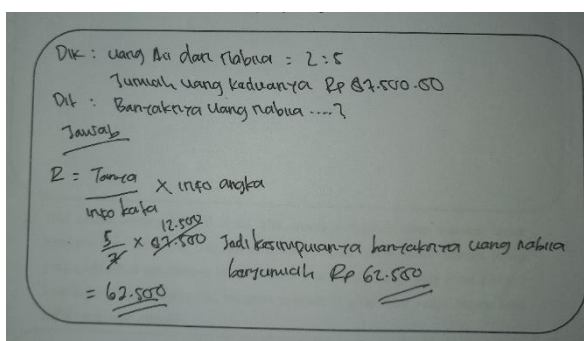 Dik : uang Ani dan Nabila = 2 : 5
Jumlah uang keduanya Rp 87.500.00
Dit : Banyaknya uang nabila ....?
Jawab
R = Tanya × info angka
info kata
5/7 × 87.500 12.500 Jadi kesimpulannya banyaknya uang nabila
= 62.500 berjumlah Rp 62.500